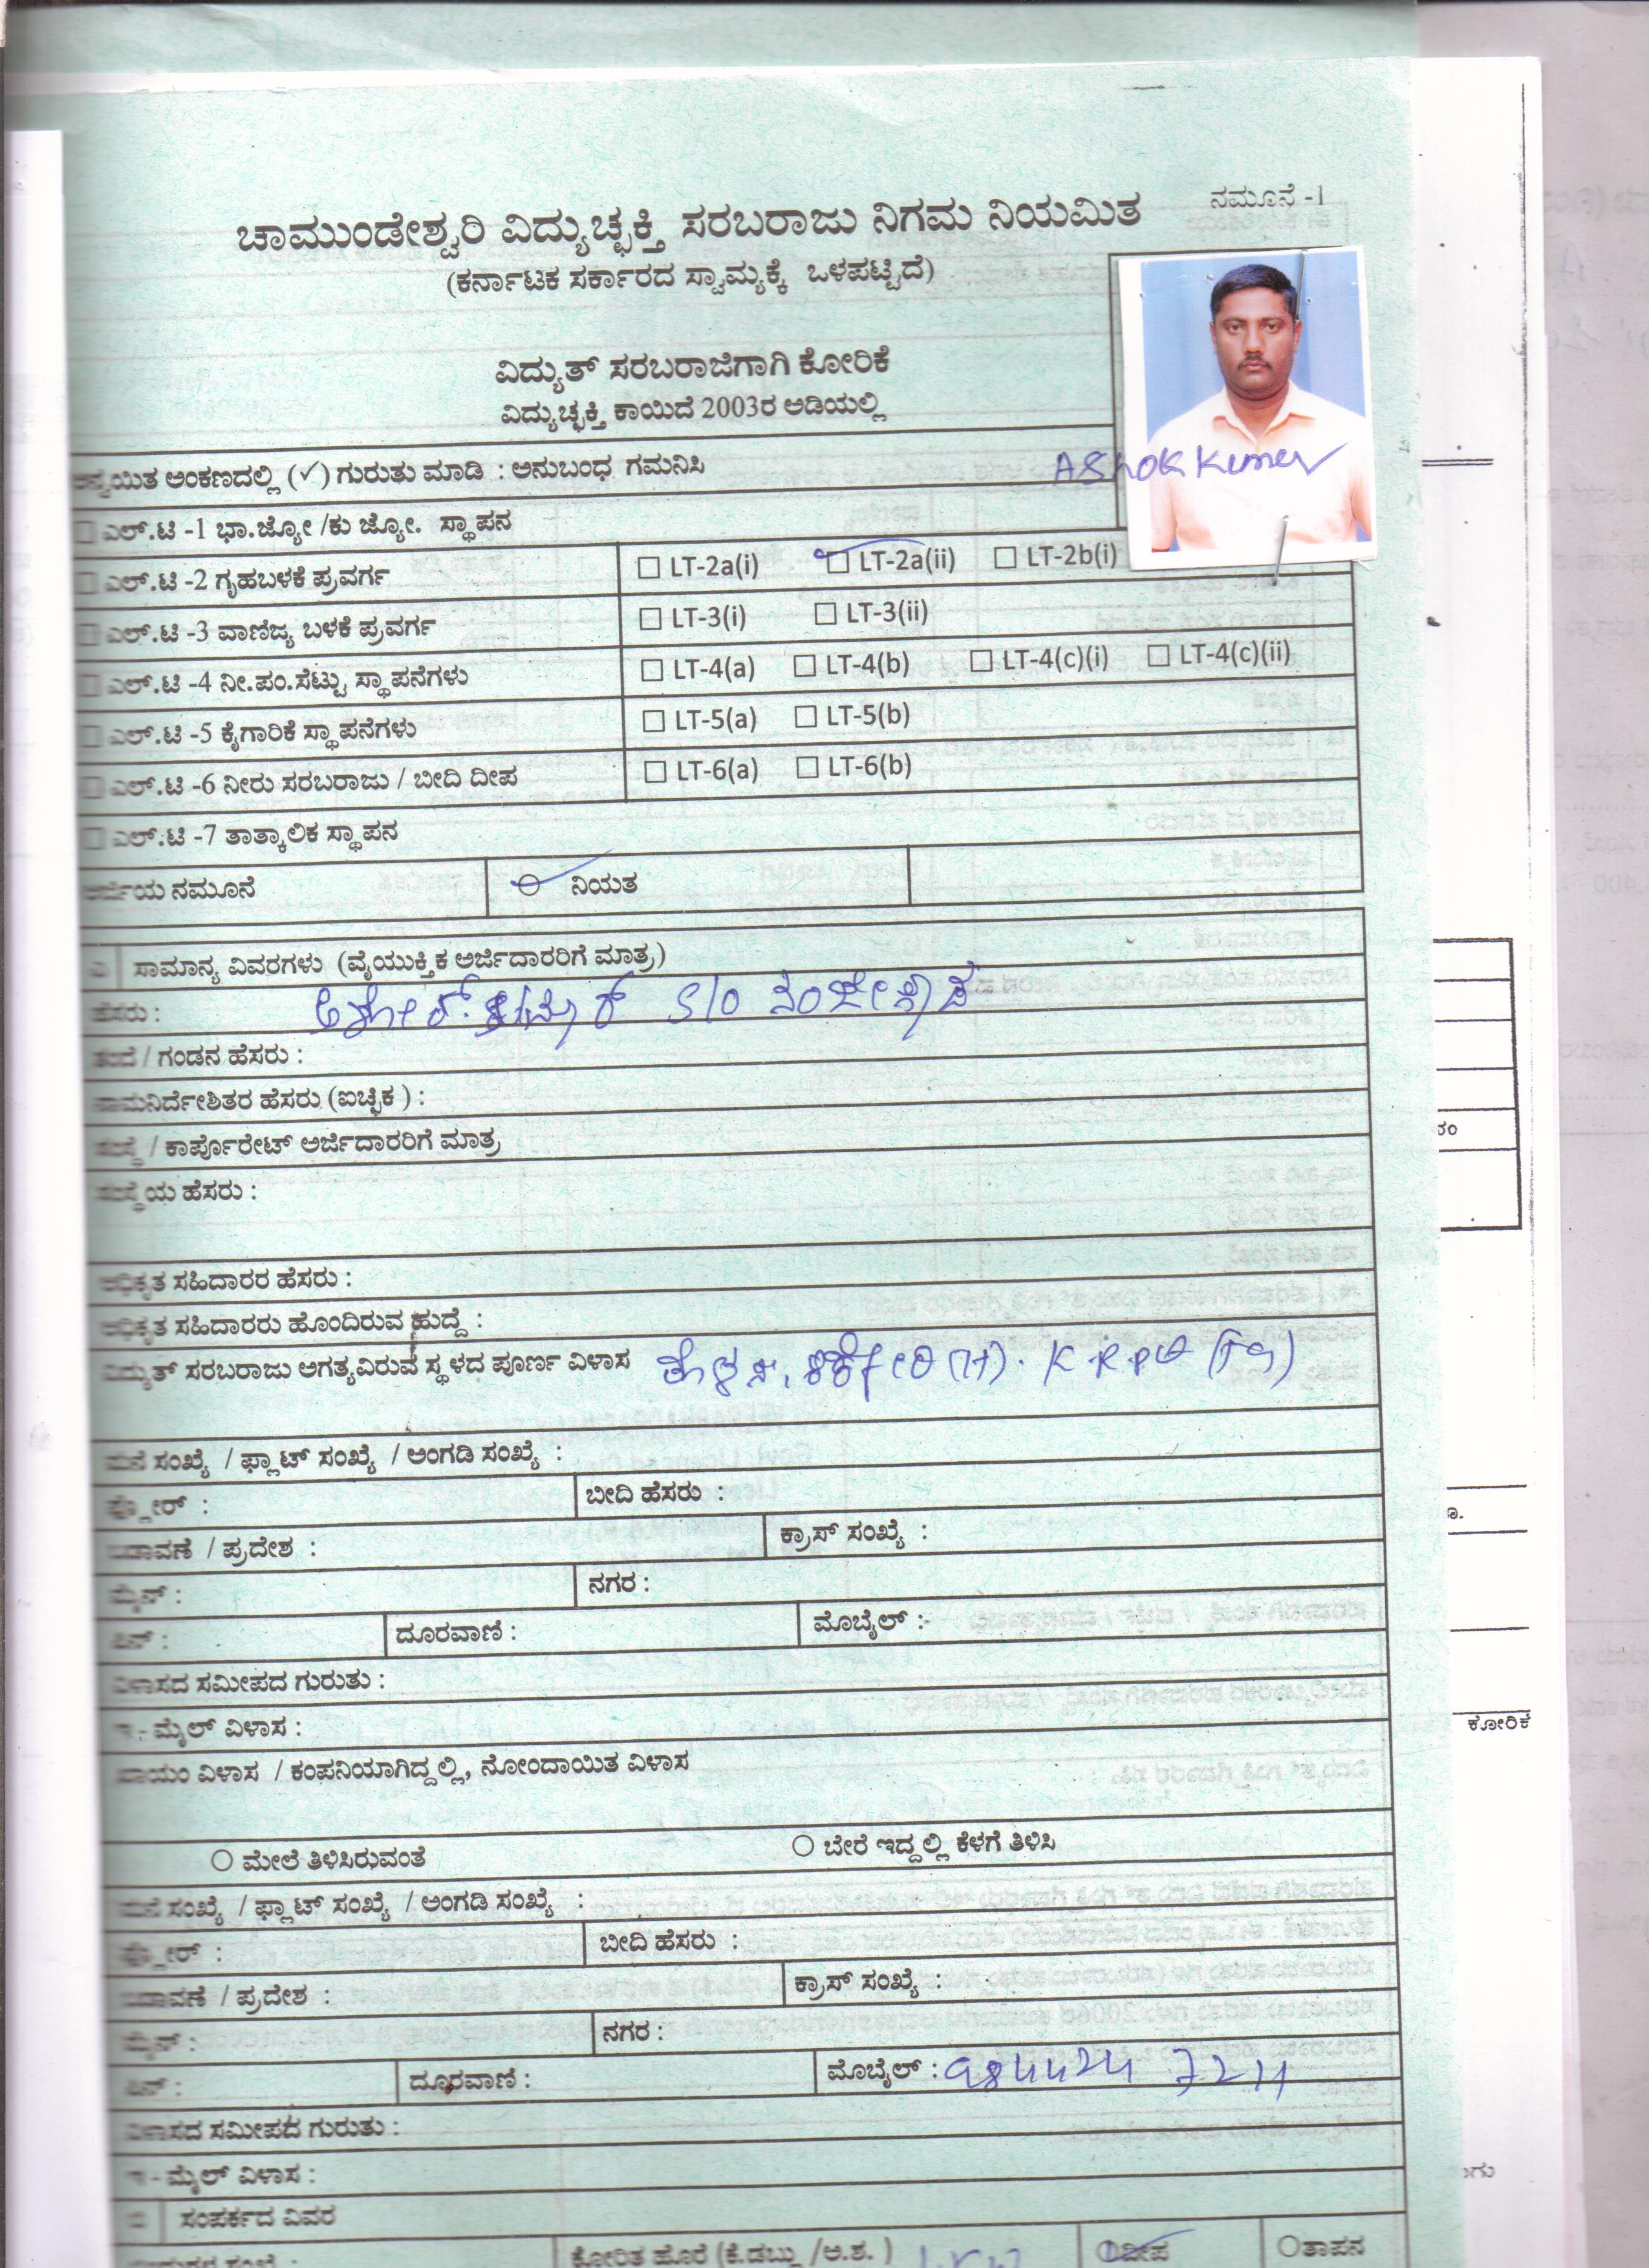 ನಮೂನೆ -1
ಚಾಮುಂಡೇಶ್ವರಿ ವಿದ್ಯುಚ್ಛಕ್ತಿ ಸರಬರಾಜು ನಿಗಮ ನಿಯಮಿತ
(ಕರ್ನಾಟಕ ಸರ್ಕಾರದ ಸ್ವಾಮ್ಯಕ್ಕೆ ಒಳಪಟ್ಟಿದೆ)
ವಿದ್ಯುತ್ ಸರಬರಾಜಿಗಾಗಿ ಕೋರಿಕೆ
ವಿದ್ಯುಚ್ಛಕ್ತಿ ಕಾಯಿದೆ 2003ರ ಅಡಿಯಲ್ಲಿ
ಅನ್ವಯಿತ ಅಂಕಣದಲ್ಲಿ (✓) ಗುರುತು ಮಾಡಿ : ಅನುಬಂಧ ಗಮನಿಸಿ
AShok Kumar
ಎಲ್.ಟಿ -1 ಭಾ.ಜ್ಯೋ /ಕು ಜ್ಯೋ. ಸ್ಥಾಪನ
ಎಲ್.ಟಿ -2 ಗೃಹಬಳಕೆ ಪ್ರವರ್ಗ LT-2a(i) LT-2a(ii) LT-2b(i)
ಎಲ್.ಟಿ -3 ವಾಣಿಜ್ಯ ಬಳಕೆ ಪ್ರವರ್ಗ LT-3(i) LT-3(ii)
ಎಲ್.ಟಿ -4 ನೀ.ಪಂ.ಸೆಟ್ಟು ಸ್ಥಾಪನೆಗಳು LT-4(a) LT-4(b) LT-4(c)(i) LT-4(c)(ii)
ಎಲ್.ಟಿ -5 ಕೈಗಾರಿಕೆ ಸ್ಥಾಪನೆಗಳು LT-5(a) LT-5(b)
ಎಲ್.ಟಿ -6 ನೀರು ಸರಬರಾಜು / ಬೀದಿ ದೀಪ LT-6(a) LT-6(b)
ಎಲ್.ಟಿ -7 ತಾತ್ಕಾಲಿಕ ಸ್ಥಾಪನ
ಅರ್ಜಿಯ ನಮೂನೆ ನಿಯತ
ಸಾಮಾನ್ಯ ವಿವರಗಳು (ವೈಯುಕ್ತಿಕ ಅರ್ಜಿದಾರರಿಗೆ ಮಾತ್ರ)
ಹೆಸರು : ಅಶೋಕ್.ಕುಮಾರ್ S/o ನಂಜೇಗೌಡ
ತಂದೆ / ಗಂಡನ ಹೆಸರು :
ನಾಮನಿರ್ದೇಶಿತರ ಹೆಸರು (ಐಚ್ಛಿಕ) :
ಸಂಸ್ಥೆ / ಕಾರ್ಪೊರೇಟ್ ಅರ್ಜಿದಾರರಿಗೆ ಮಾತ್ರ
ಸಂಸ್ಥೆಯ ಹೆಸರು :
ಅಧಿಕೃತ ಸಹಿದಾರರ ಹೆಸರು :
ಅಧಿಕೃತ ಸಹಿದಾರರು ಹೊಂದಿರುವ ಹುದ್ದೆ :
ವಿದ್ಯುತ್ ಸರಬರಾಜು ಅಗತ್ಯವಿರುವ ಸ್ಥಳದ ಪೂರ್ಣ ವಿಳಾಸ
ಮನೆ ಸಂಖ್ಯೆ / ಫ್ಲಾಟ್ ಸಂಖ್ಯೆ / ಅಂಗಡಿ ಸಂಖ್ಯೆ :
ಫ್ಲೋರ್ : ಬೀದಿ ಹೆಸರು :
ಬಡಾವಣೆ / ಪ್ರದೇಶ : ಕ್ರಾಸ್ ಸಂಖ್ಯೆ :
ಮೈನ್ : ನಗರ :
ಪಿನ್ : ದೂರವಾಣಿ : ಮೊಬೈಲ್ :-
ವಿಳಾಸದ ಸಮೀಪದ ಗುರುತು :
ಇ - ಮೈಲ್ ವಿಳಾಸ :
ಖಾಯಂ ವಿಳಾಸ / ಕಂಪನಿಯಾಗಿದ್ದಲ್ಲಿ, ನೋಂದಾಯಿತ ವಿಳಾಸ
ಮೇಲೆ ತಿಳಿಸಿರುವಂತೆ ಬೇರೆ ಇದ್ದಲ್ಲಿ ಕೆಳಗೆ ತಿಳಿಸಿ
ಮನೆ ಸಂಖ್ಯೆ / ಫ್ಲಾಟ್ ಸಂಖ್ಯೆ / ಅಂಗಡಿ ಸಂಖ್ಯೆ :
ಫ್ಲೋರ್ : ಬೀದಿ ಹೆಸರು :
ಬಡಾವಣೆ / ಪ್ರದೇಶ : ಕ್ರಾಸ್ ಸಂಖ್ಯೆ :
ಮೈನ್ : ನಗರ :
ಪಿನ್ : ದೂರವಾಣಿ : ಮೊಬೈಲ್ : 9844247211
ವಿಳಾಸದ ಸಮೀಪದ ಗುರುತು :
ಇ - ಮೈಲ್ ವಿಳಾಸ :
ಸಂಪರ್ಕದ ವಿವರ
ಕೋರಿತ ಹೊರೆ (ಕೆ.ಡಬ್ಲು /ಅ.ಶ. ) ದೀಪ ತಾಪನ
ಕೋರಿಕೆ